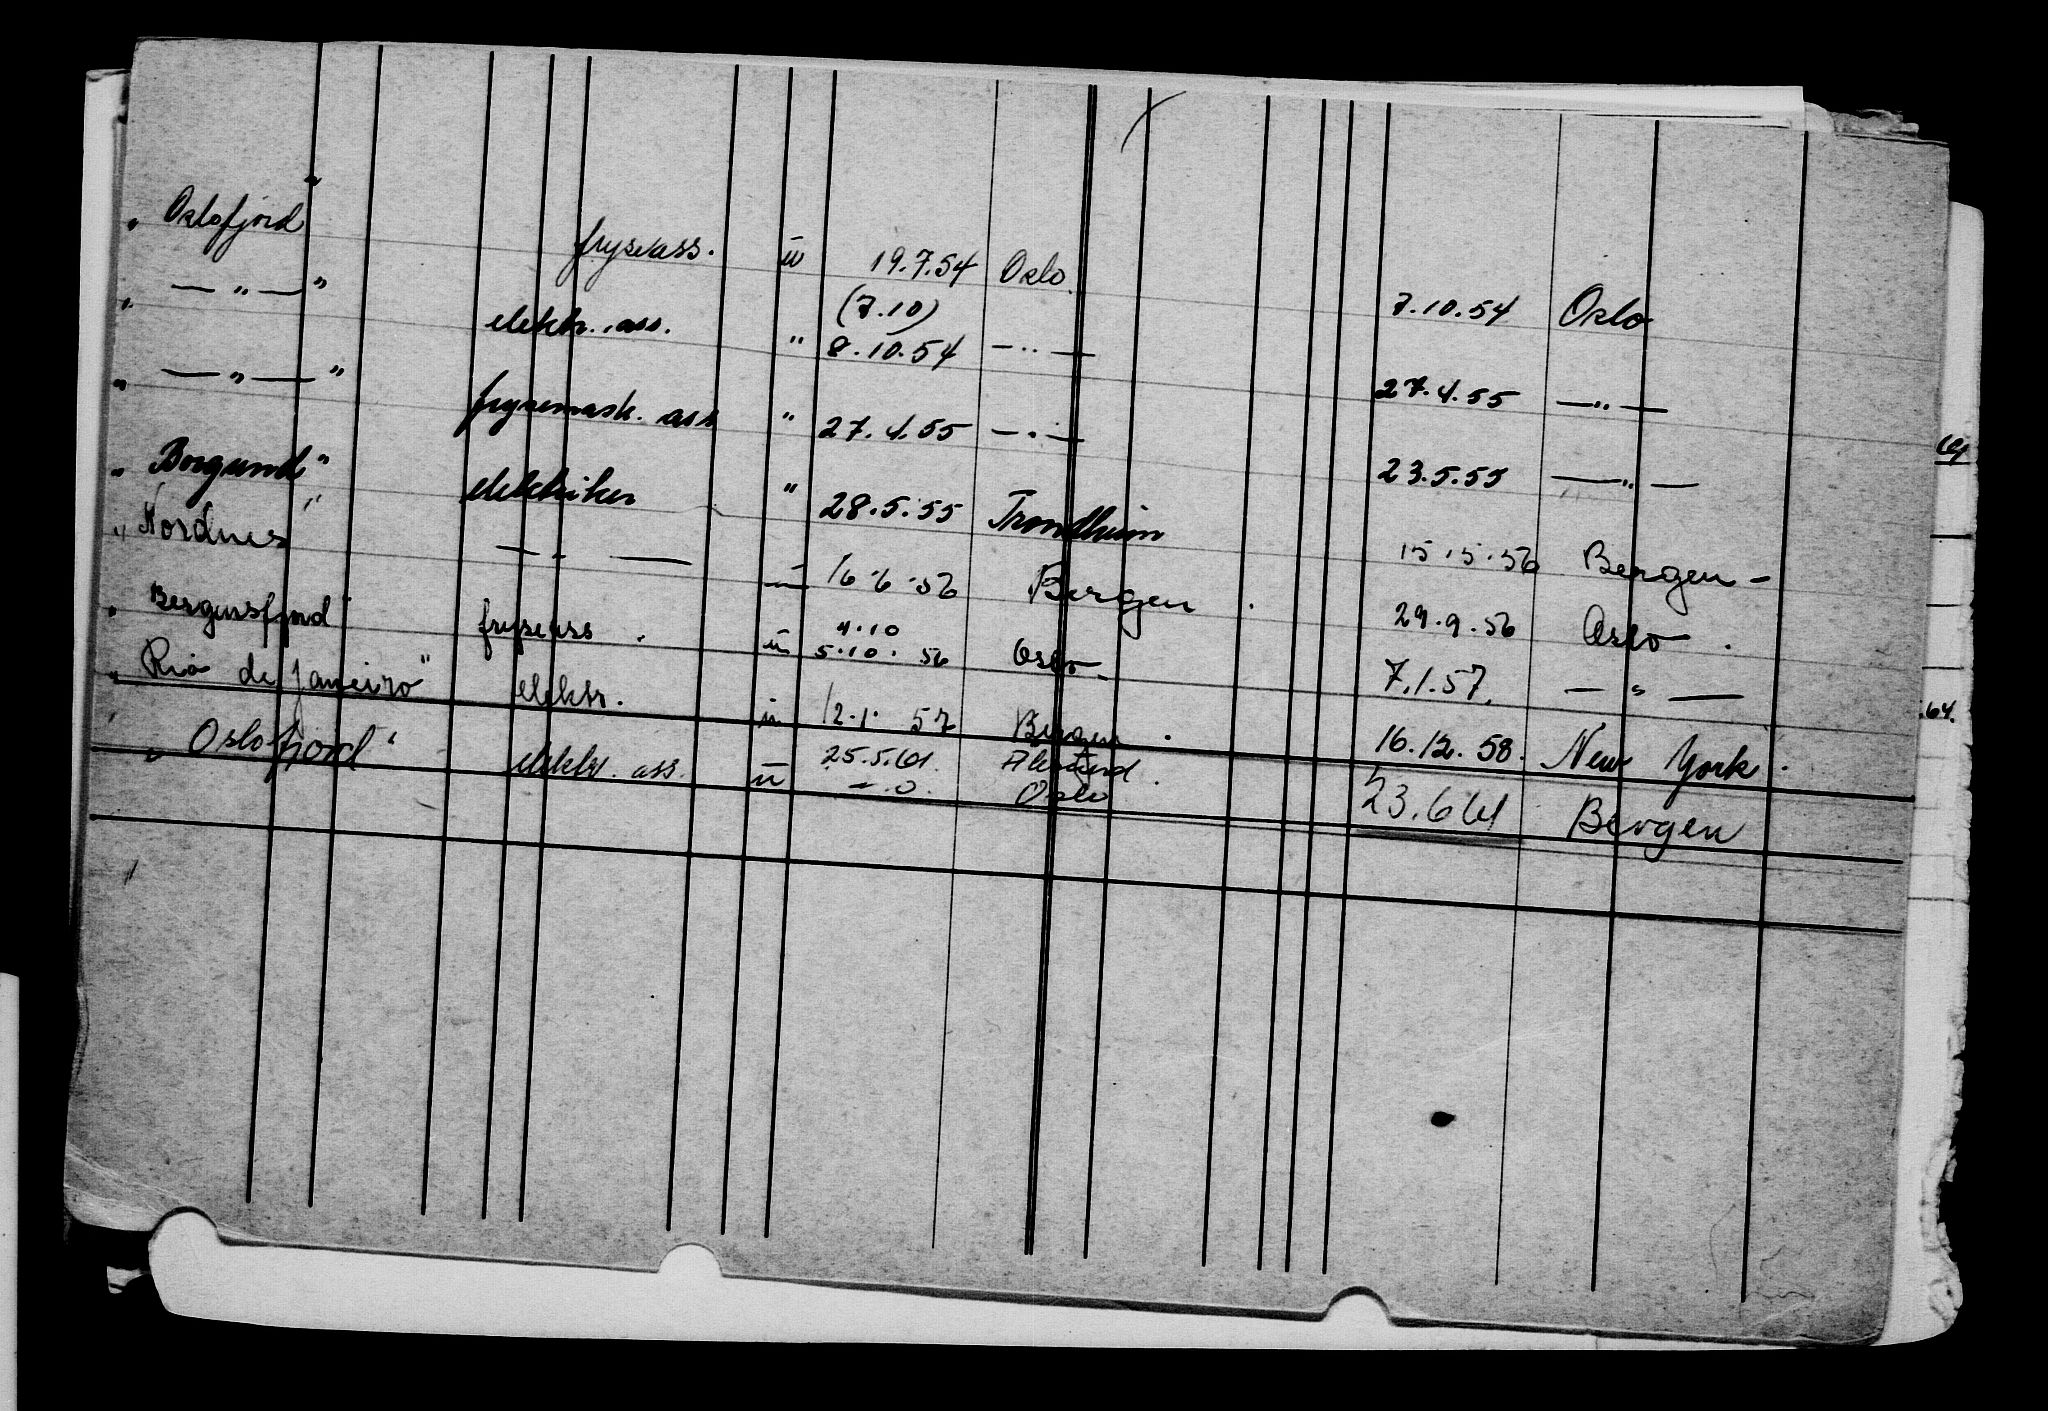 „ Oslofjord " fryseass. ü 19.7.54 Oslo. 7.10.54 Oslo
„ — „ — " elektr. ass. " (7.10) 8.10.54 — „ — 27.4.55 — „ —
„ — „ — " frysemask. ass " 27.4.55 — „ — 23.5.55 — „ —
„ Borgund " elektriker " 28.5.55 Trondheim 15.5.56 Bergen -
„ Nordnes " — „ — ü 16.6.56 Bergen . 29.9.56 Oslo .
„ Bergensfjord " fryseass . ü 4.10 5.10.56 Oslo - 7.1.57. — „ —
„ Rio de Janeiro " elektr. ü 12.1.57 Bergen . 16.12.58. New York .
„ Oslofjord " elektr. ass. ü 25.5.61. Ålesund . 23.6 61 Bergen
— „ . Oslo
64.